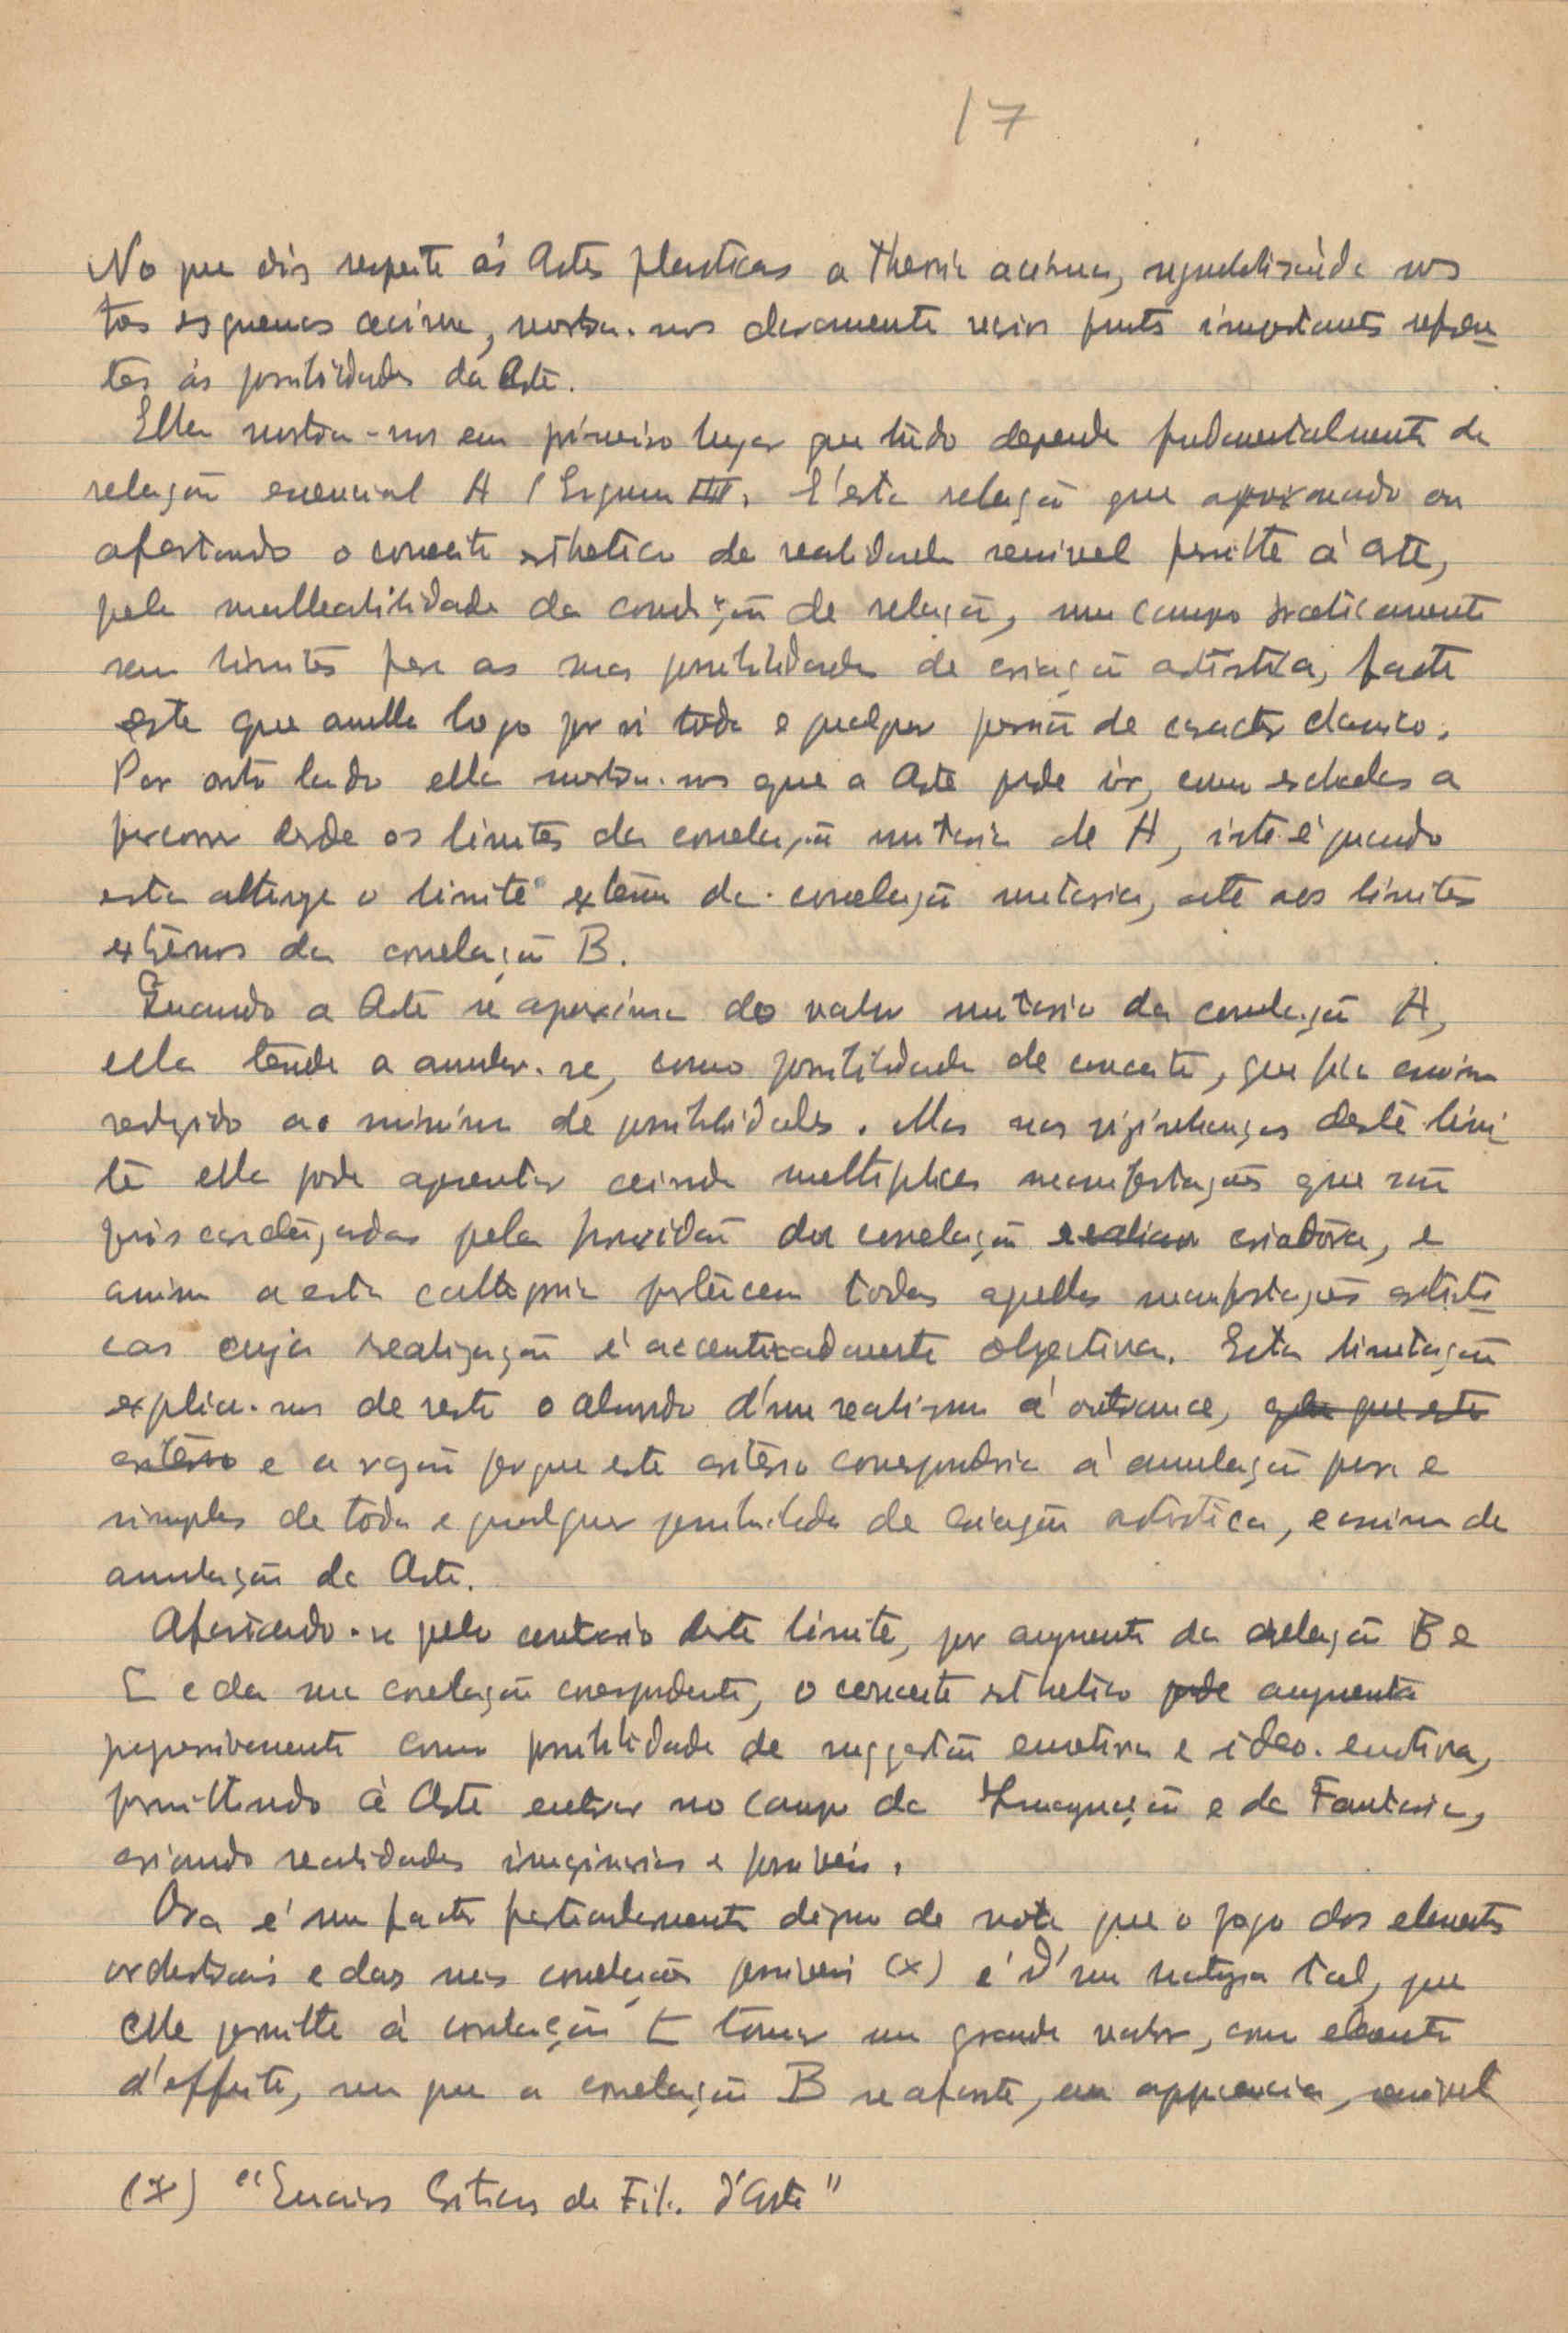 17
No que diz respeito ás Artes plasticas a theoria acima,
tos esquemas acima, mostra-nos claramente varios pontos importantes referen-
tes ás possibilidades da Arte.
Ella mostra-nos em primeiro lugar que tudo depende fundamentalmente da
relação essencial A (Esquema III. É esta relação que aproximando ou
afastando o conceito esthetico da realidade sensivel permitte á arte,
pela malleabilidade da condição de relação, um campo praticamente
sem limites para as suas possibilidades de criação artistica, facto
este que anulla logo por si toda e qualquer de caracter classico.
Por outro lado ella mostra-nos que a Arte pode ir, como escalas a
percorrer desde os limites da correlação unitaria de A, isto é quando
esta attinge o limite extremo da correlação unitaria, até aos limites
extremos da correlação B.
Quando a Arte se aproxima do valor unitario da correlação A,
ella tende a anular-se, como possibilidade de conceito, que fica assim
reduzido ao minimo de possibilidades. Mas nas visinhanças deste limi-
te ella pode apresentar ainda multiplices manifestações que são
pois pela da correlação criadora, e
assim a esta cathegoria pertencem todas aquellas manifestações artisti-
cas cuja realização é accentuadamente objectiva. Esta limitação
explica-nos de resto o absurdo d'um realismo á outrance, que este
criterio e a razão porque este criterio corresponderia á anulação pura e
simples de toda e qualquer possibilidade de criação artistica, e assim da
anulação da Arte.
Afastando-se pelo contrario deste limite, por augmento da relação B e
C e da sua correlação correspondente, o conceito esthetico pode augmenta
progressivamente como possibilidade de suggestão emotiva e ideo-emotiva,
permittindo á Arte entrar no campo da Imaginação e da Fantasia,
criando realidades imaginarias e possiveis.
Ora é um facto particularmente digno de nota, que o jogo dos elementos
e das suas correlações possiveis (x) é d'uma natureza tal, que
elle permitte á correlação E tomar um grande valor, como elemento
d'effeito, sem que a correlação B se afaste, em apparencia, sensivel
(x) "Ensaios Criticos de Fil. d'Arte"